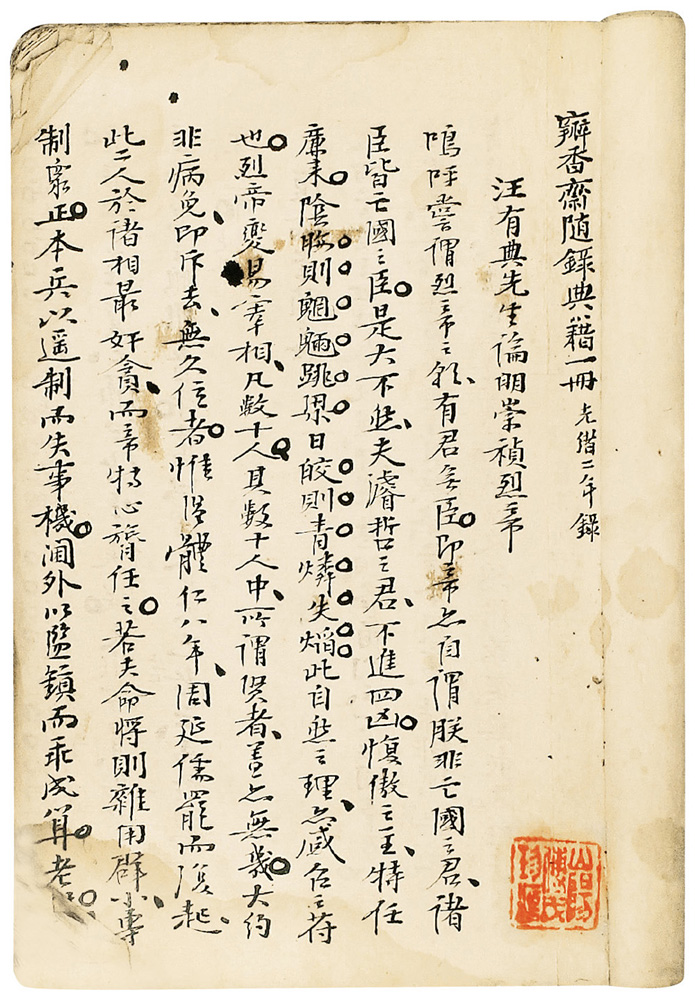 瓣香齋隨錄典籍一冊 光緒二年錄
汪有典先生論明崇禎烈帝
嗚呼嘗謂烈帝之有君無臣即帝亦自謂朕非亡國之君諸
臣皆亡國之臣是大不然夫濬哲之君不進四凶愎傲之主特任
廉來陰晦則魍魎跳梁日皎則青燐失焰此自然之理亦感召之符
也烈帝變易宰相凡數十人其數十人中所謂賢者蓋亦無幾大約
非病免即斥去無久位者惟溫體仁八年周延儒罷而復起
此二人於諸相最奸貪而帝特心膂任之若夫命將則雜用群小專
制眾正本兵以遥制而失事機閫外以監鎮而乖成算老
山陽